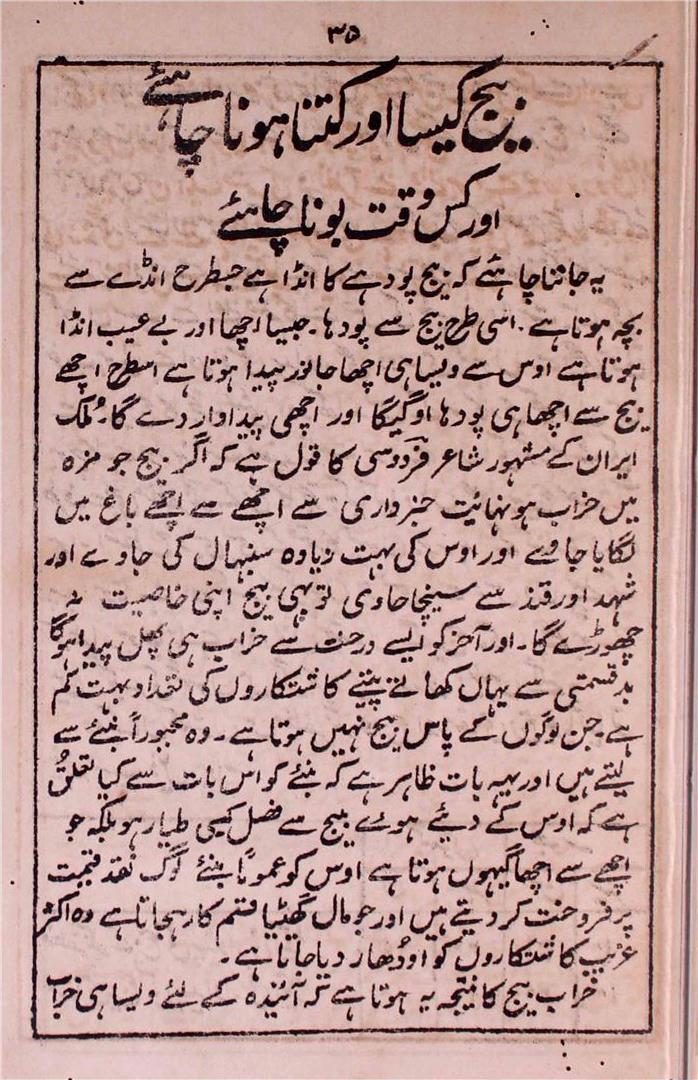 ۳۵
بیج کیسا اور کتنا ہونا چاہئے
اور کس وقت بونا چاہئے
یہ جاننا چاہئے کہ بیج پودہے کا انڈا ہے جسطرح انڈے سے
بچہ ہوتا ہے۔ اسی طرح بیج سے پودہا۔ جیسا اچھا اور بے عیب انڈا
ہوتا ہے اوس سے ویسا ہی اچھا جانور پیدا ہوتا ہے اسطرح اچھے
بیج سے اچھا ہی پودہا اوگیگا اور اچھی پیداوار دے گا۔ مُلک
ایران کے مشہور شاعر فردوسی کا قول ہے کہ اگر بیج جو مزہ
میں خراب ہو نہائیت خبرداری سے اچھے سے اچھے باغ میں
لگایا جاوے اور اوس کی بہت زیادہ سنبہال کی جاوے اور
شہد اور قند سے سینچا جاوی تو بہی بیج اپنی خاصیت نہ
چھوڑے گا۔ اور آخر کو ایسے درخت سے خراب ہی پھل پیدا ہوگا
بدقسمتی سے یہاں کھاتے پیتے کاشتکاروں کی تعداد بہت کم
ہے۔ جن لوگوں کے پاس بیج نہیں ہوتا ہے۔ وہ مجبوراً بنئے سے
لیتے ہیں اور یہہ بات ظاہر ہے کہ بنئے کو اس بات سے کیا تعلق
ہے کہ اوس کے دیئے ہوے بیج سے فصل کیسی طیار ہو بلکہ جو
اچھے سے اچھا گیہوں ہوتا ہے اوس کو عموماً بنئے لوگ نقد قیمت
پر فروخت کر دیتے ہیں اور جو مال گھٹیا قسم کا رہجاتا ہے وہ اکثر
غریب کاشتکاروں کو اودُھار دیا جاتا ہے۔
خراب بیج کا نتیجہ یہ ہوتا ہے کہ آئیندہ کے لئے ویسا ہی خراب